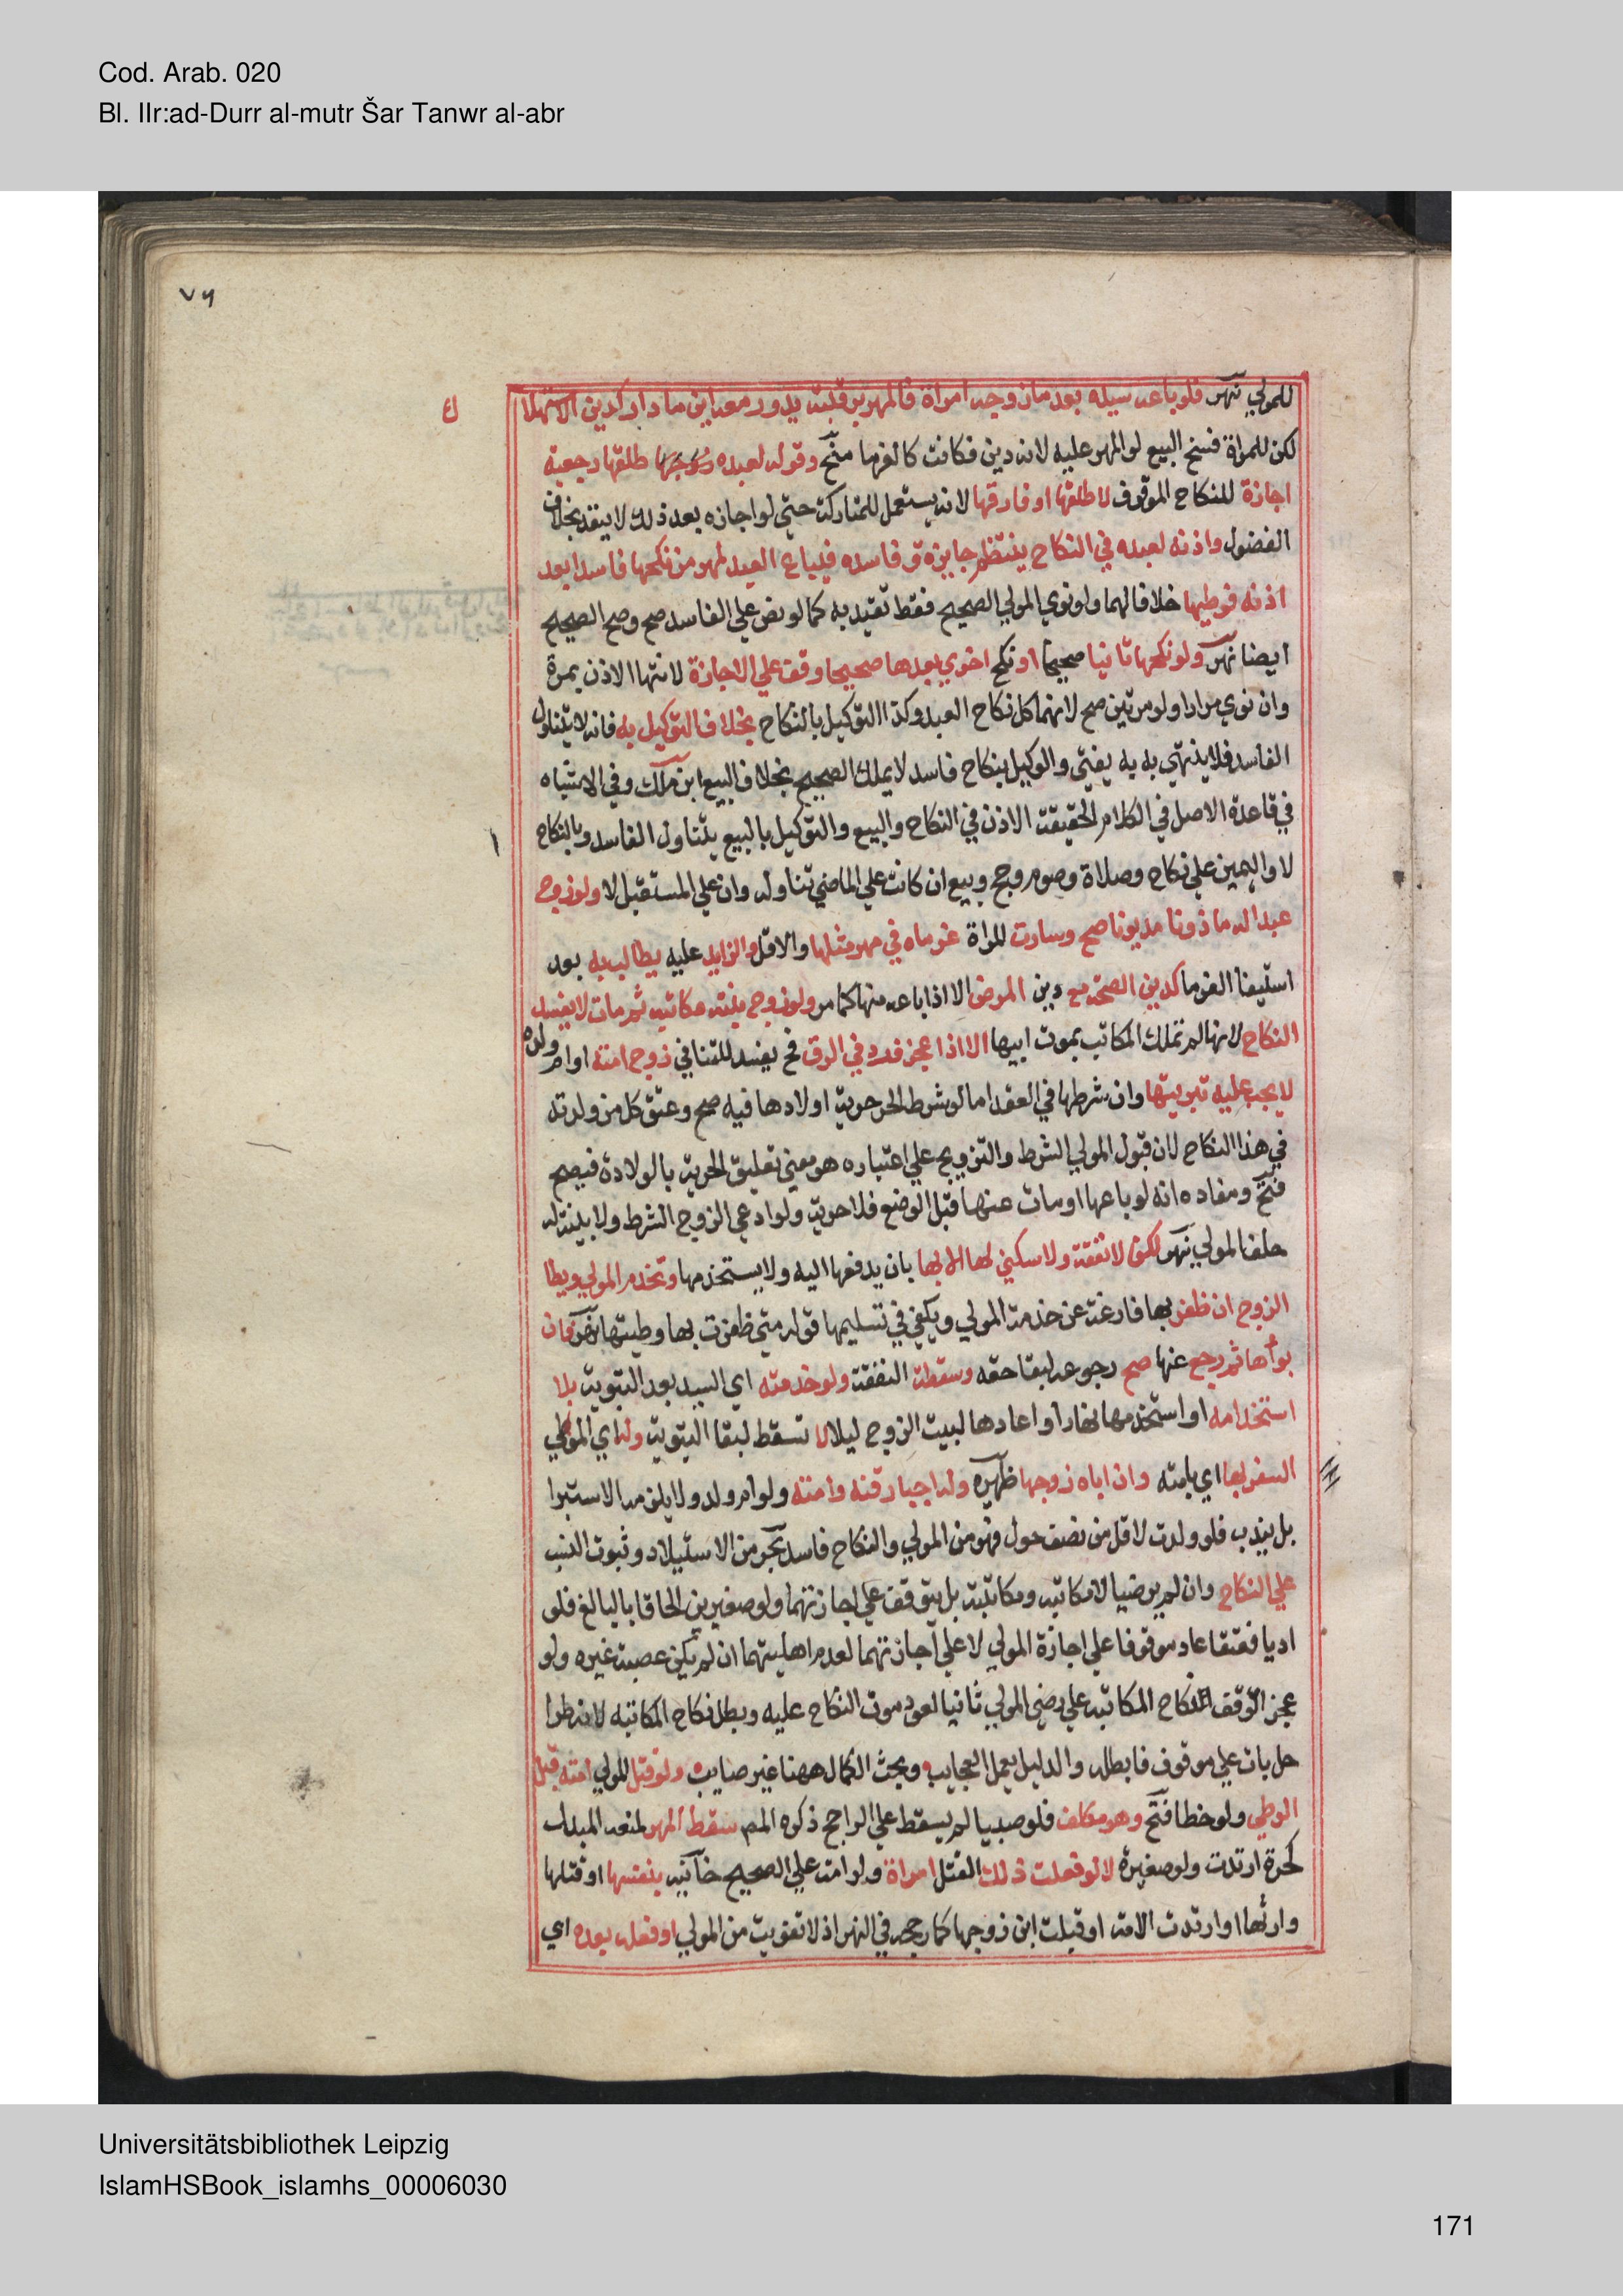 Cod. Arab. 020
Bl. IIr:ad-Durr al-mutr Šar Tanwr al-abr
٧٩
للمولي نهر فلو باعه سيده بعد ما زوجه امراة فالمهر برقبته يدور معه اينما دار كدين الاستهلا
ك
لكن للمراة فسخ البيع لو المهر عليه لانه دين فكانت كالغرما منح وقوله لعبده طلقها رجعية
اجازة للنكاح الموقوف لا طلقها او فارقها لانه يستعمل للمتاركة حتي لو اجازه بعد ذلك لا ينفد بخلاف
الفضول واذنه لعبده في النكاح ينتظم جايزه وفاسده فيباع العبد لمهر من نكحها فاسدا بعد
اذنه فوطيها خلافا لهما ولو نوي المولي الصحيح فقط تقيد به كما لو نص علي الفاسد صح وصح الصحيح
ايضا نهر ولو نكحها ثانيا صحيحا او نكح اخري بعدها صحيحا وقف علي الاجازة لانتها الاذن بمرة
وان نوي مرارا ولو مرتين صح لانهما كل نكاح العبد وكذا التوكيل بالنكاح بخلاف التوكيل به فانه لا يتناول
الفاسد فلا ينتهي به به يفتي والوكيل بنكاح فاسد لا يملك الصحيح بخلاف البيع ابن ملك وفي الاشباه
في قاعدة الاصل في الكلام الحقيقة الاذن في النكاح والبيع والتوكيل بالبيع يتناول الفاسد وبالنكاح
لا واليمين علي نكاح وصلاة وصوم وحج وبيع ان كانت علي الماضي تناوله وان علي المستقبل لا ولو زوج
عبدا له ماذونا مديونا صح وسارت للمراة غرماه في مهر مثلها والاقل والزايد عليه يطالب به بعد
استيفا الغرما كدين الصحة مع دين المرض الا اذا باعه منها كما مر ولو زوج بنته مكاتبه ثم مات لا يفسد
النكاح لانها لم تملك المكاتب بموت ابيها الا اذا عجز فرد في الرق فح يفسد للتنافي زوج امته او ام ولده
لا يجب عليه تبويتها وان شرطها في العقد اما لو شرط الحر حرية اولادها فيه صح وعتق كل من ولدته
في هذا النكاح لان قبول المولي الشرط والتزويج علي اعتباره هو معني تعليق الحرية بالولادة فيصح
فتح ومفاده انه لو باعها او مات عنها قبل الوضع فلا حرية ولو ادعي الزوج الشرط ولا بينة له
حلف المولي نهر لكن لا نفقة ولا سكني لها الا بها بان يدفعها اليه ولا يستخدمها وتخدم المولي ويطا
الزوج ان ظفر بها فارغة عن خدمة المولي ويكفي في تسليمها قوله متي ظفرت بها وطيتها نهر فان
بوأها ثم رجع عنها صح رجوعه لبقا حقه وسقطت النفقة ولو خدمته اي السيد بعد التبوية بلا
استخدامه او استخدمها نهارا واعادها لبيت الزوج ليلا لا تسقط لبقا التبوية وله اي المولي
السفر بها اي بامته وان اباه زوجها ظهيره وله اجبار قنه وامته ولو ام ولد ولا يلزمه الاستبرا
بل يندب فلو ولدت لاقل من نصف حول فهو من المولي والنكاح فاسد بحر من الاستيلاد وثبوت النسب
علي النكاح وان لم يرضيا لا مكاتبه ومكاتبته بل يتوقف علي اجازتهما ولو صغيرين الحاقا بالبالغ فلو
اديا فعتقا عاد موقوفا علي اجازة المولي لا علي اجازتهما لعدم اهليتهما ان لم يكن عصبة غيره ولو
عجز التوقف النكاح المكاتبه علي رضي المولي ثانيا لعود موت النكاح عليه وبطل نكاح المكاتبه لانه طرا
حل بات علي موقوف فابطله والدليل يعمل العجايب وبحث الكمال ههنا غير صايب ولو قتل المولي امته قبل
الوطي ولو خطا فتح وهو مكلف فلو صبيا لم يسقط علي الراجح ذكره المص سقط المهر لمنعه المبدل
كحرة ارتدت ولو صغيرة لا لو فعلت ذلك القتل امراة ولو امة علي الصحيح خانيه بنفسها او قتلها
وارثها او ارتدت الامة او قبلت ابن زوجها كما رجحه في النهر اذ لا تفويت من المولي او فعله بعده اي
Universitätsbibliothek Leipzig
IslamHSBook_islamhs_00006030
171